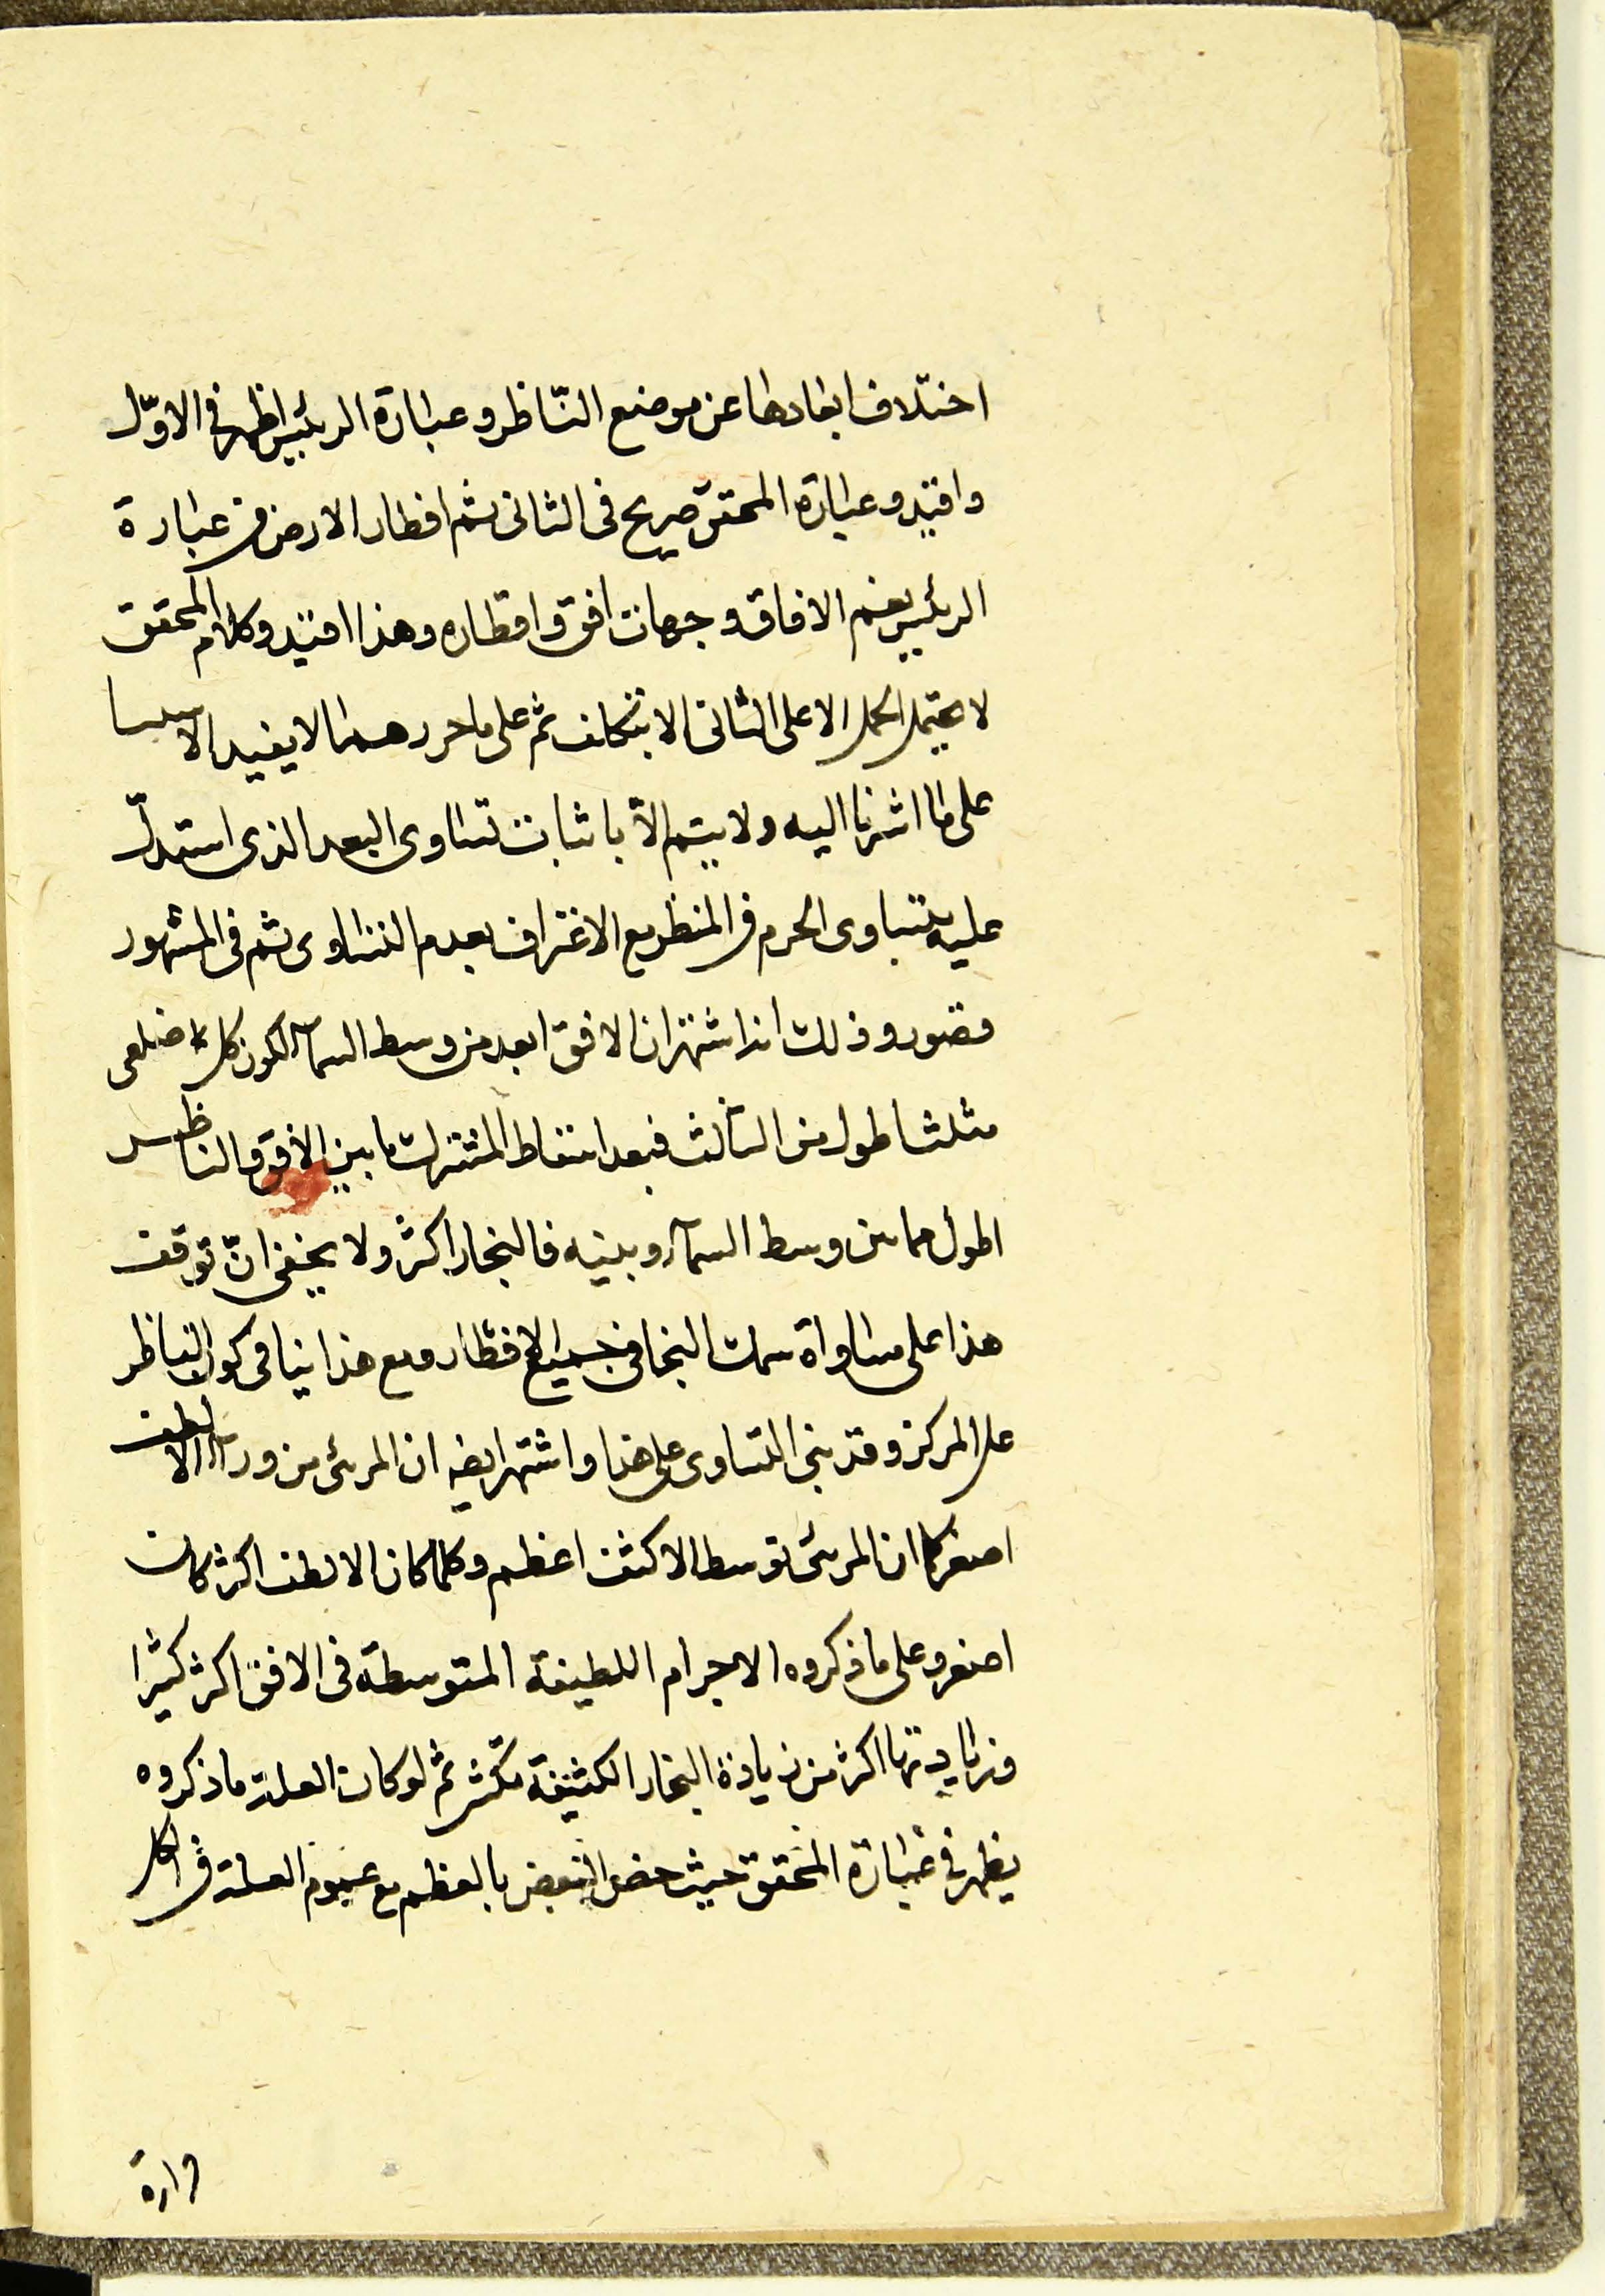 اختلاف ابعادها عن موضع النّاظر وعبارة الرئيس اظهر فى الاوّل
وافيد وعبارة المحقق صريح فى الثانى ثم اقطار الارض فى عبارة
الرئيس يعم الافاق وجهات افق واقطاره وهذا افيد وكلام المحقق
لا يحتمل الحمل الا على الثانى الا بتكلف ثم على ما حررهما لا يفيد الا
على ما اشرنا اليه ولا يتم الّا باثبات تساوى البعد الذى استدلّ
عليه بتساوى الجرم فى المنظر مع الاعتراف بعدم التساوى ثم فى المشهور
قصور وذلك انه اشتهر ان الافق ابعد من وسط السمآء لكون كل ضلعى
مثلث اطول من الثالث فبعد اسقاط المشترك ما بين الافق والناظر
اطول مما بين وسط السمآء وبينه فالبخار اكثر ولا يخفى انّ توقف
هذا على مساواة سمك البخار فى جميع الاقطار ومع هذا ينافى كون الناظر
على المركز وقد بنى التساوى على هذا واشتهر ايضا ان المرئى من وراء الالطف
اصغر كما ان المرئى بتوسط الاكثف اعظم وكلما كان الالطف اكثر كان
اصغر وعلى ما ذكروه الاجرام اللطيفة المتوسطة فى الافق اكثر كثيرا
وزيادتها اكثر من زيادة البخار الكثيفة بكثير ثم لو كان العلة ما ذكروه
يظهر فى عبارة المحقق حيث خص البعض بالعظم مع عموم العلة فى الكل